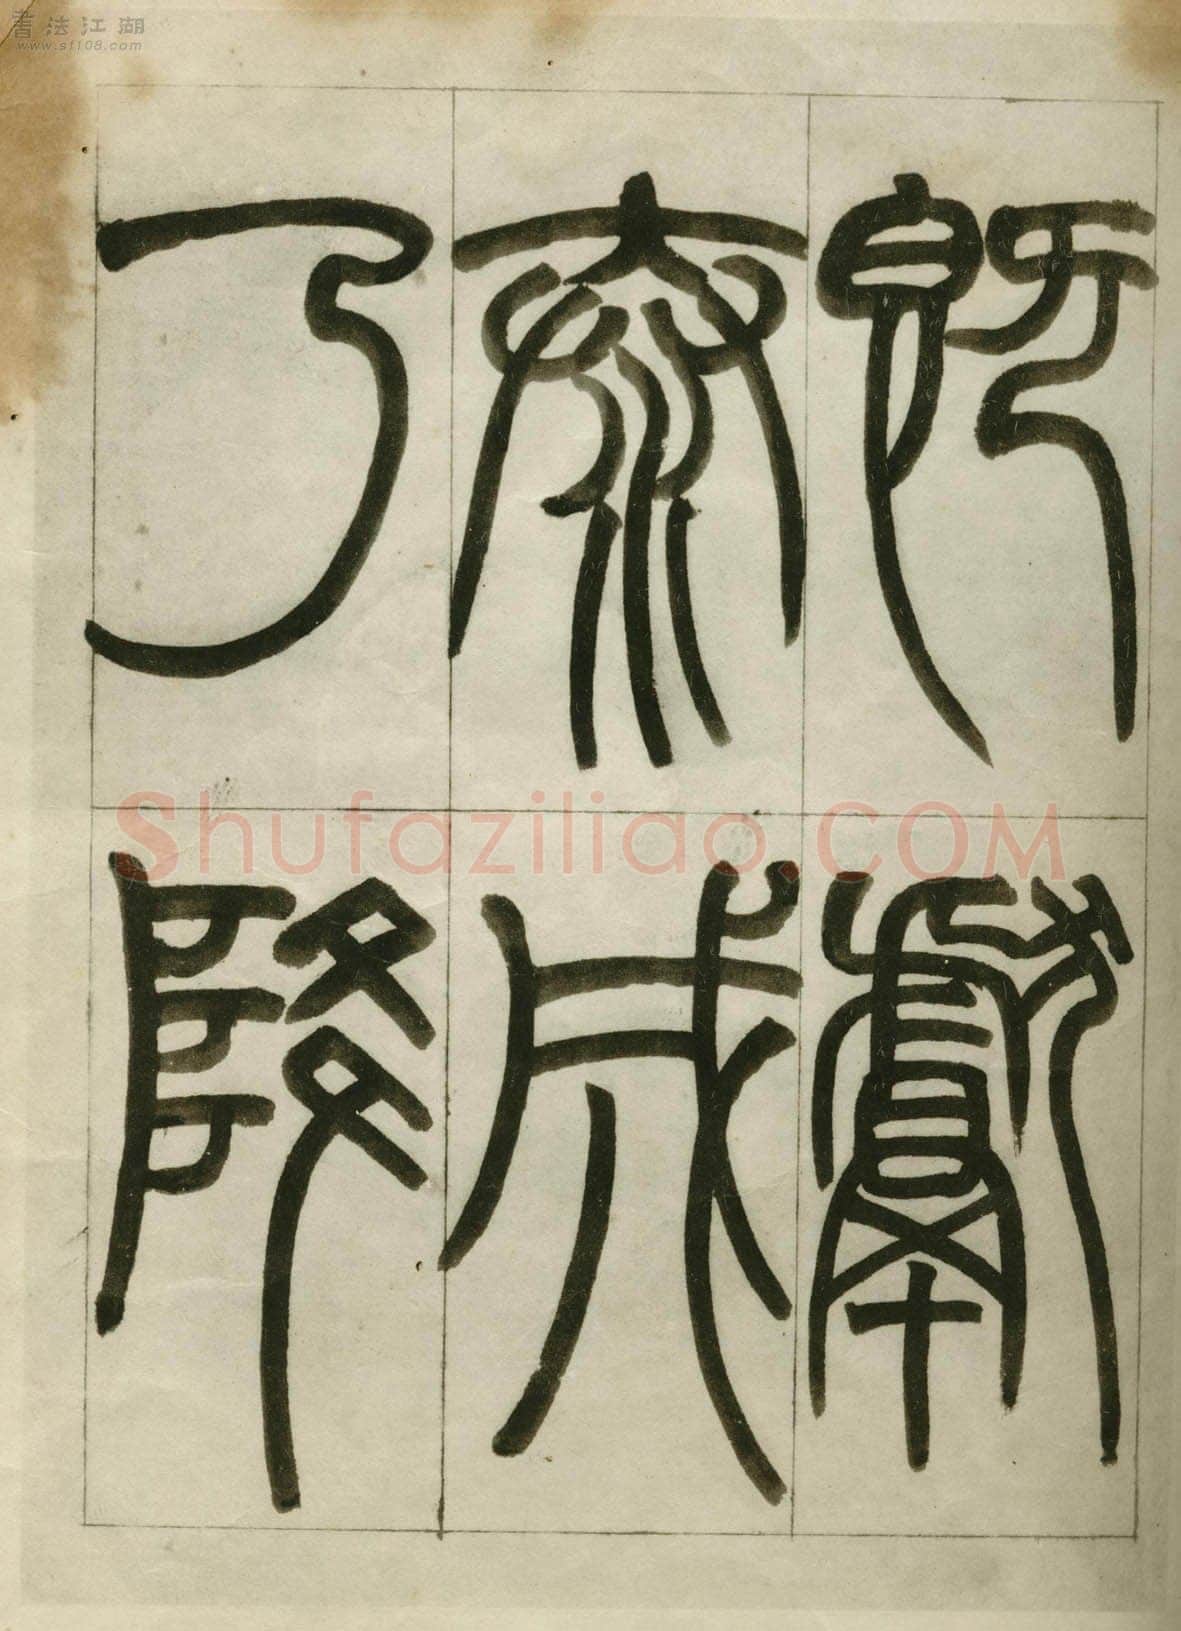 書法江湖
www.sf108.com
既獻
泰成
乃降
Shufaziliao.COM